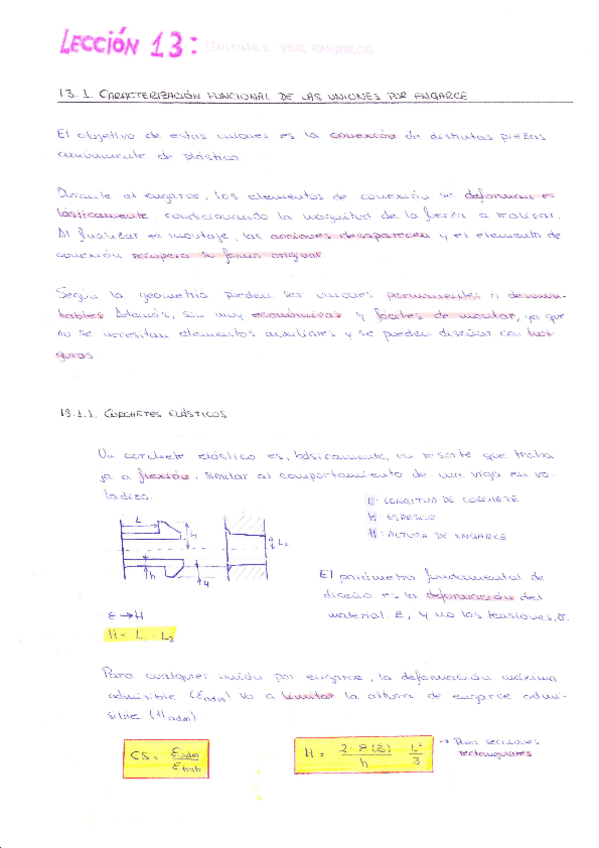 LECCIÓN 13: UNIONES POR ENGARCE
13.1. CARACTERIZACIÓN FUNCIONAL DE LAS UNIONES POR ENGARCE
El objetivo de estas uniones es la conexión de distintas piezas
comúnmente de plástico
Durante el engarce, los elementos de conexión se deforman e-
lásticamente condicionando la magnitud de la fuerza a realizar.
Al finalizar el montaje, las acciones desaparecen y el elemento de
conexión recupera su forma original.
Según la geometría pueden ser uniones permanentes o desmon-
tables Además, son muy económicas y fáciles de montar, ya que
no se necesitan elementos auxiliares y se pueden diseñar con hol
guras.
13.1.1. CORCHETES ELÁSTICOS
Un corchete elástico es, básicamente, un resorte que traba
ja a flexión, similar al comportamiento de una viga en vo
ladizo.
L: LONGITUD DE CORCHETE
h: ESPESOR
H: ALTURA DE ENGARCE
L
H
h
H
El parámetro fundamental de
diseño es la deformación del
material ε, y no las tensiones, σ.
ε → H
H = L - L₂
Para cualquier unión por engarce, la deformación máxima
admisible (εadm) va a limitar la altura de engarce admi-
sible (Hadm)
CS = εadm / εtrab
H = 2·ε(%) / h · L² / 3
→ Para secciones
rectangulares